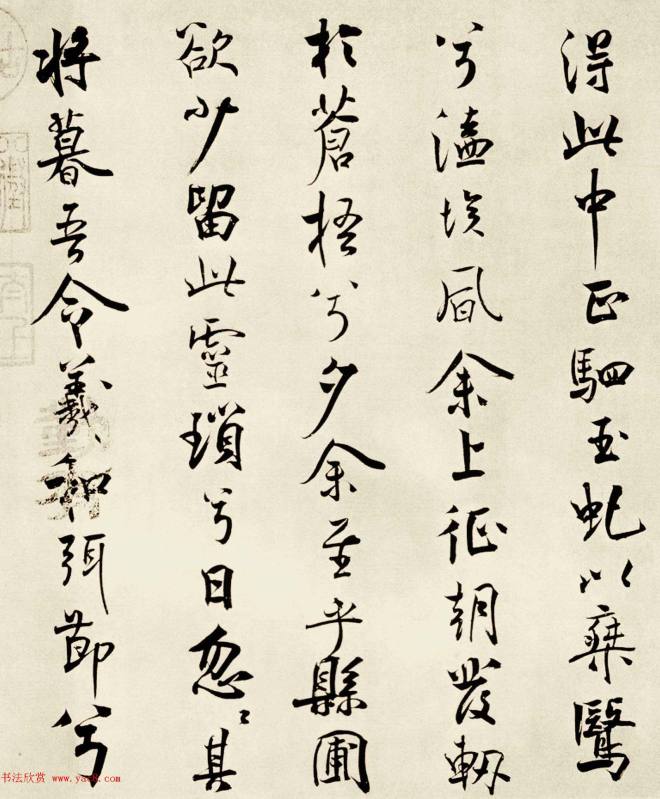 得此中正駟玉虬以椉鷖
兮溘埃風余上征朝發軔
於蒼梧兮夕余至乎縣圃
欲少留此靈瑣兮日忽〻其
將暮吾令羲和弭節兮
书法欣赏 www.yac8.com